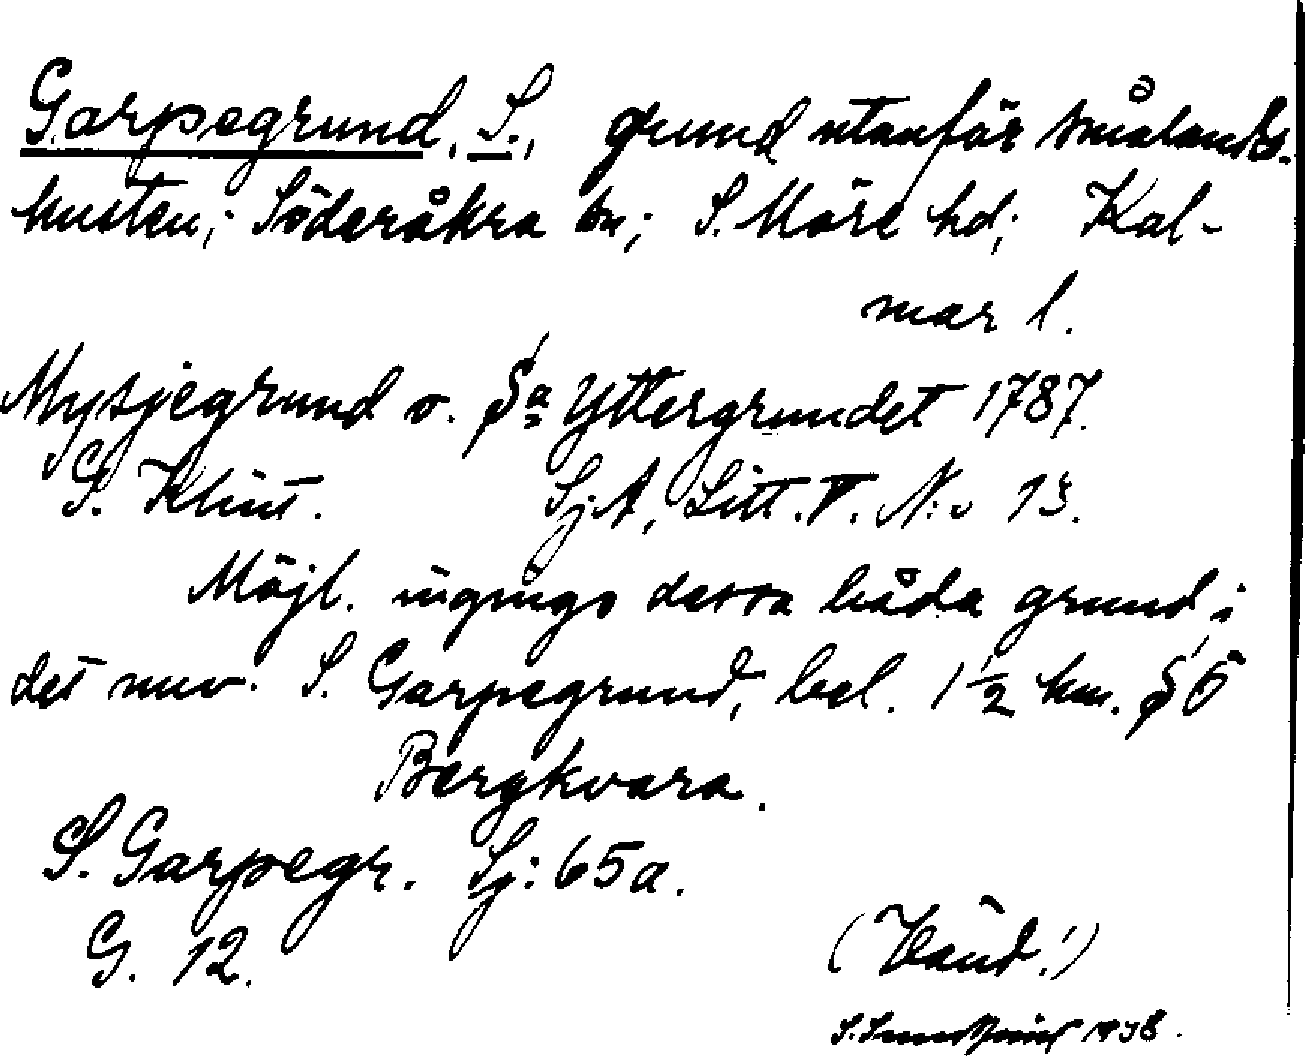 Garpegrund, S., grund utanför Smålands-
kusten; Söderåkra sn; S. Möre hd; Kal-
mar l.
Mysjegrund o. Sa Yttergrundet 1787.
G. Klint. Sj.A, Litt. V. No 13.
Möjl. ingingo dessa båda grund i
det nuv. S. Garpegrund, bel. 1 1/2 km. SÖ
Bergkvara.
S. Garpegr. Sj: 65a.
G. 12.
(Känd!)
1938.